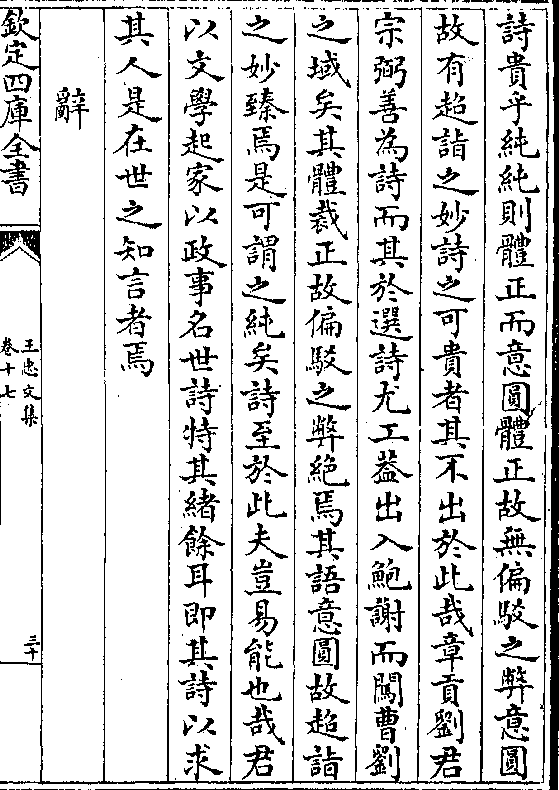 詩貴乎純純則體正而意圓體正故無偏駁之弊意圓
故有超詣之妙詩之可貴者其不出於此哉章貢劉君
宗弼善為詩而其於選詩尤工葢出入鮑謝而闖曹劉
之域矣其體裁正故偏駁之弊絶焉其語意圓故超詣
之妙臻焉是可謂之純矣詩至於此夫豈易能也哉君
以文學起家以政事名世詩特其緒餘耳即其詩以求
其人是在世之知言者焉
辭
欽定四庫全書
王忠文集
卷十七
三十